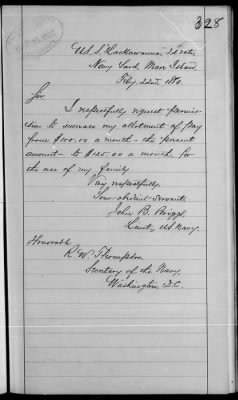 328
U.S.S. Lackawanna, 2d rate,
Navy Yard, Mare Island
Feby. 22nd 1880.
Sir
I respectfully request permis-
sion to increase my allotment of pay
from $100.00 a month - the present
amount - to $125.00 a month, for
the use of my family.
Very respectfully,
Your obedient servant,
John B. Briggs,
Lieut, US Navy.
Honorable
R. W. Thompson
Secretary of the Navy,
Washington D.C.